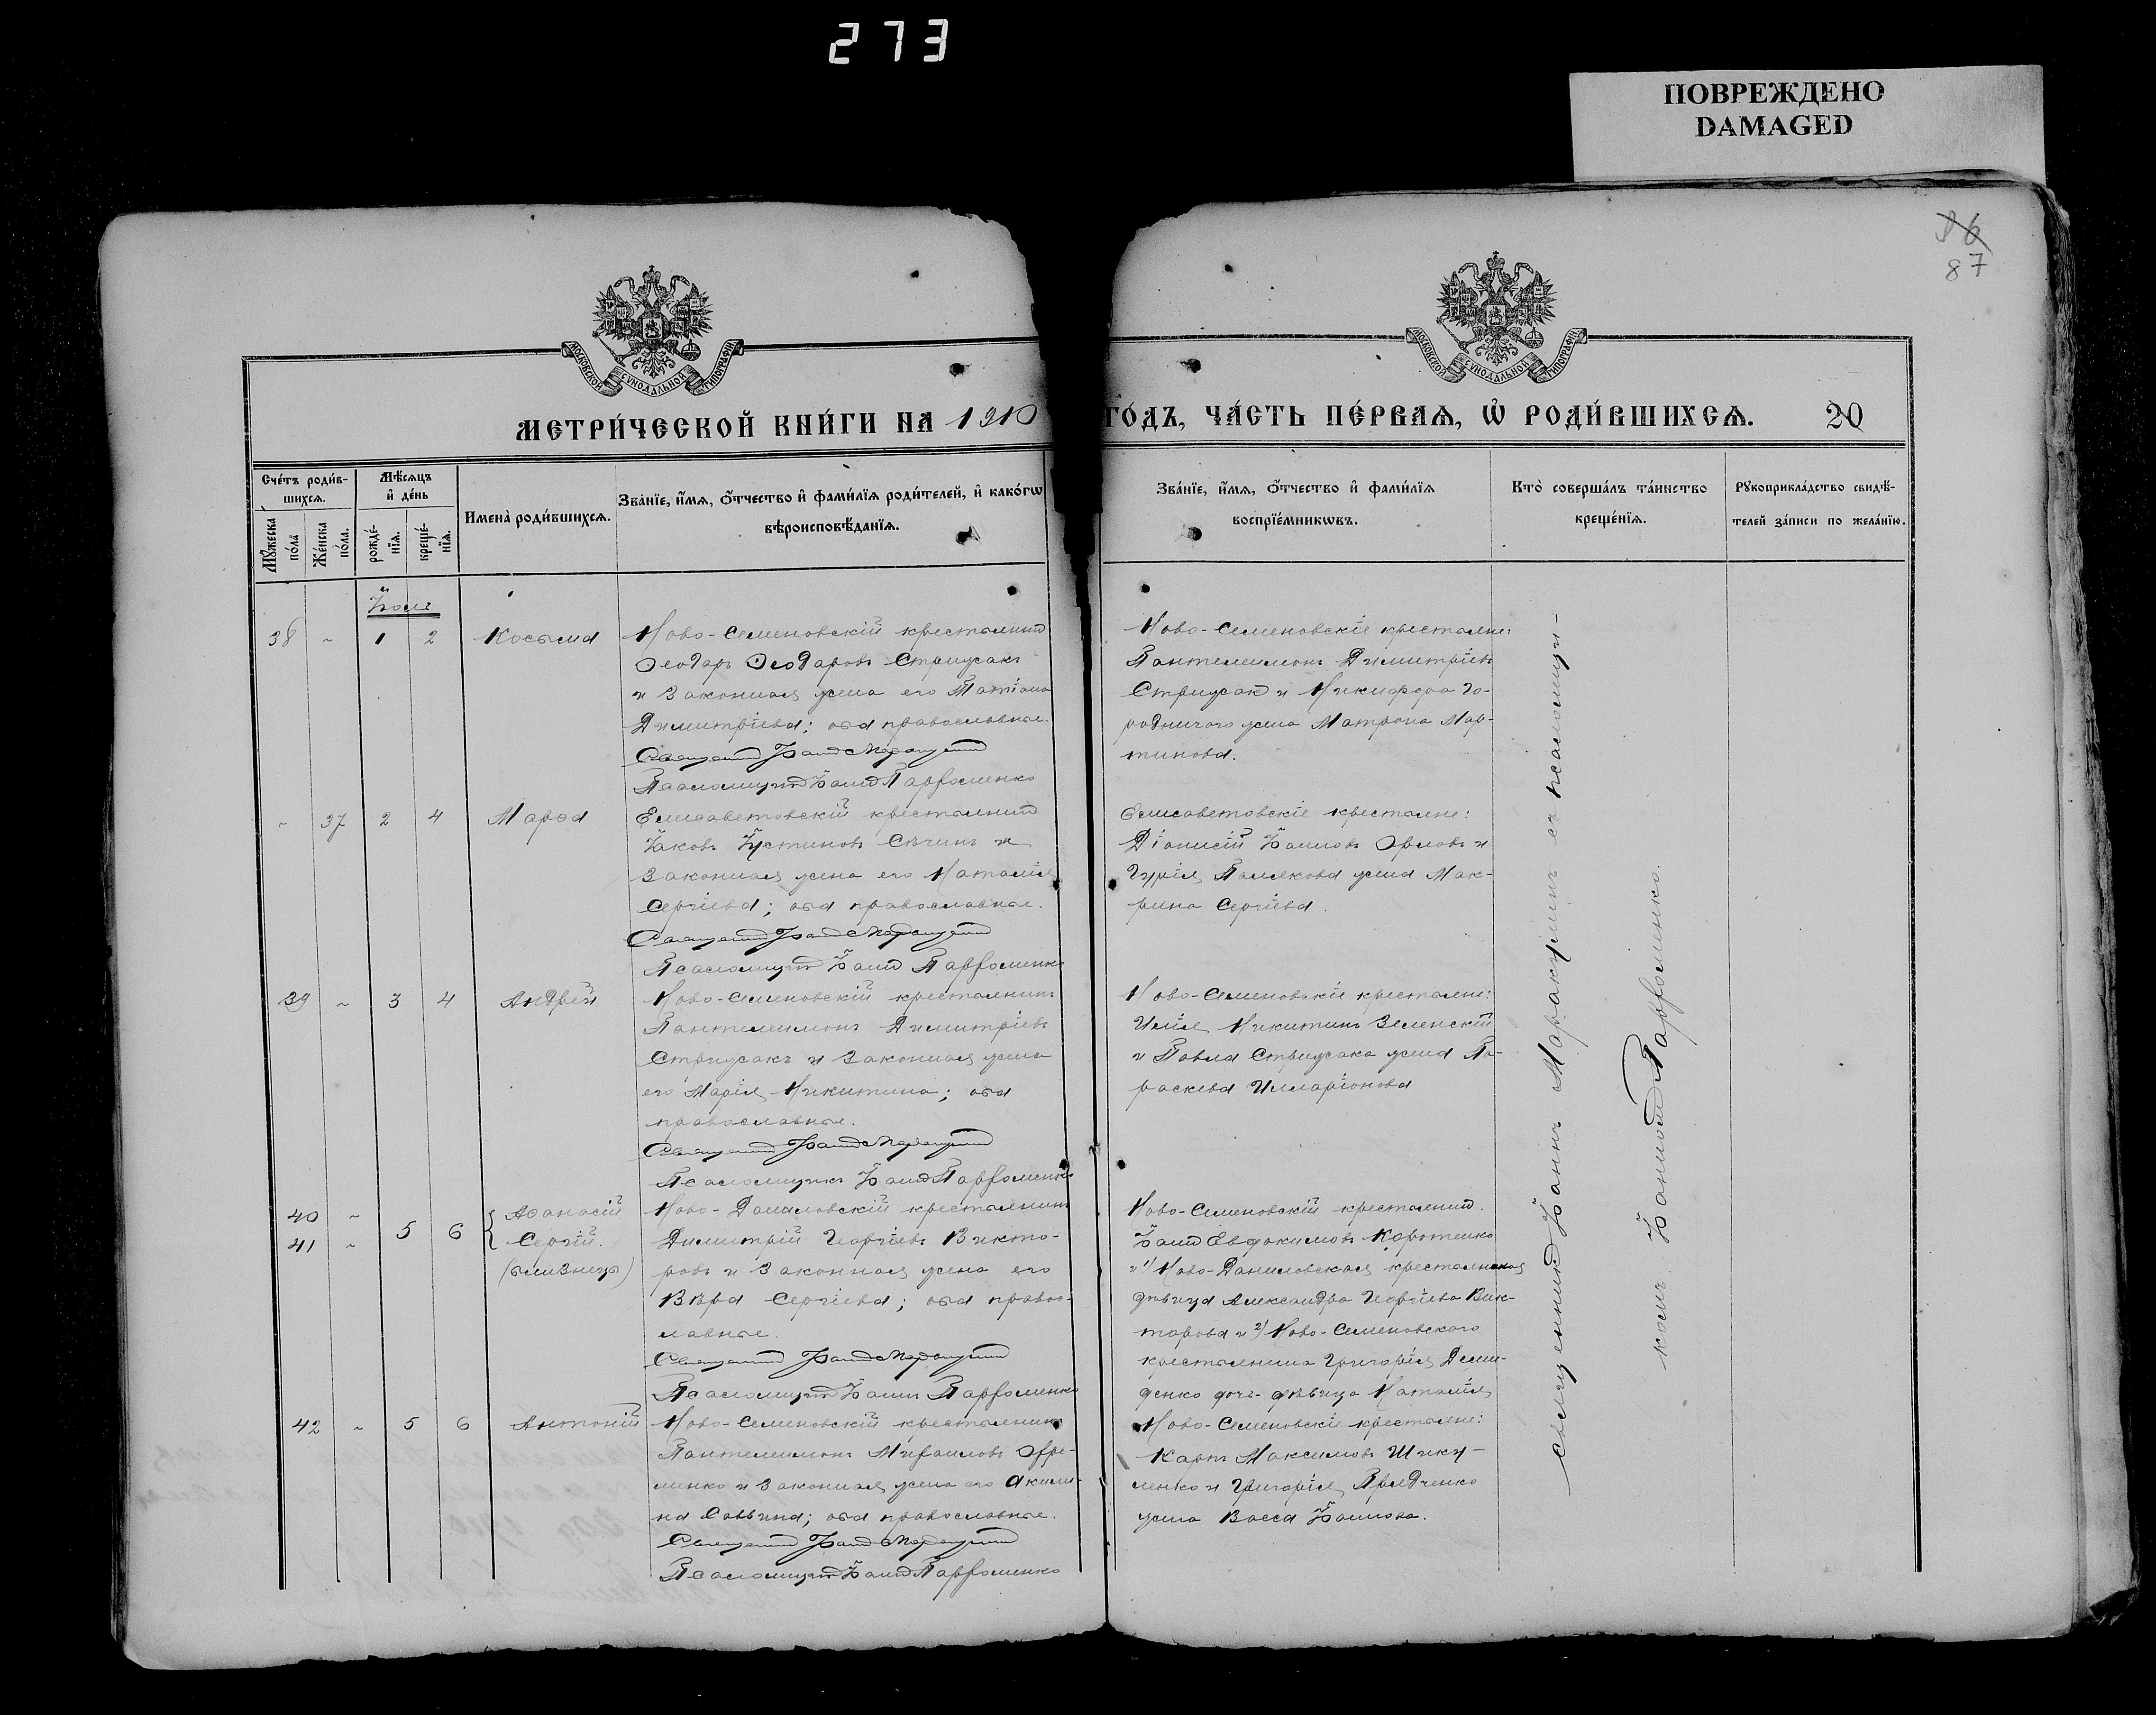 273
ПОВРЕЖДЕНО
DAMAGED
86
87
МОСКОВСКОЙ СѴНОДАЛЬНОЙ ТИПОГРАФІИ
МОСКОВСКОЙ СѴНОДАЛЬНОЙ ТИПОГРАФІИ
МЕТРИ́ЧЕСКОЙ КНИ́ГИ НА 1910 ГО́ДЪ, ЧА́СТЬ ПЕ́РВАѦ, Ѽ РОДИ́ВШИХСѦ. 20
Сче́тъ роди́в-
шихсѧ.
Мꙋ́жеска по́ла
Же́нска по́ла.
Мѣ́сѧцъ
и҆ де́нь
рожде́-
нїѧ.
креще́-
нїѧ.
Имена̀ роди́вшихсѧ.
Зва́нїе, и҆́мѧ, ѻ҆́тчество и҆ фами́лїѧ роди́телей, и҆ како́гѡ
вѣроисповѣ́данїѧ.
Зва́нїе, и҆́мѧ, ѻ҆́тчество и҆ фами́лїѧ
воспрїе́мникѡвъ.
Кто̀ соверша́лъ та́инство
креще́нїѧ.
Рꙋкоприкла́дство свидѣ́-
телей за́писи по жела́нїю.
Іюль
38 ~ 1 2 Косьма
Ново-Семеновскій крестьянинъ
Ѳеодоръ Ѳеодоровъ Стрижакъ
и законная жена его Татіана
Димитріева; оба православные.
Священникъ Іоаннъ Маракулинъ
Псаломщикъ Іоаннъ Парфоменко
Ново-Семеновскіе крестьяне:
Пантелеимонъ Димитріевъ
Стрижакъ и Никифора Го-
родничого жена Матрона Мар-
тинова.
~ 37 2 4 Марѳа
Елисаветовскій крестьянинъ
Іаковъ Іустиновъ Сѣчинъ и
законная жена его Наталія
Сергіева; оба православные.
Священникъ Іоаннъ Маракулинъ
Псаломщикъ Іоаннъ Парфоменко
Елисаветовскіе крестьяне:
Діонисій Іоанновъ Орловъ и
Гурія Полякова жена Мак-
рина Сергіева.
39 ~ 3 4 Андрей
Ново-Семеновскій крестьянинъ
Пантелеимонъ Димитріевъ
Стрижакъ и законная жена
его Марія Никитина; оба
православные.
Священникъ Іоаннъ Маракулинъ
Псаломщикъ Іоаннъ Парфоменко
Ново-Семеновскіе крестьяне:
Илія Никитинъ Зеленскій
и Павла Стрижака жена Па-
раскева Илларіонова
40 ~
41 ~
5 6
Аѳанасій
Сергій.
(близнецы)
Ново-Даниловскій крестьянинъ
Димитрій Георгіевъ Викто-
ровъ и законная жена его
Вѣра Сергіева; оба правос-
лавные.
Священникъ Іоаннъ Маракулинъ
Псаломщикъ Іоаннъ Парфоменко
Ново-Семеновскій крестьянинъ.
Іоаннъ Евдокимовъ Коротенко
и 1) Ново-Даниловская крестьянская
дѣвица Александра Георгіева Вик-
торова и 2) Ново-Семеновского
крестьянина Григорія Деми-
денко дочь-дѣвица Наталія
42 ~ 5 6 Антоній
Ново-Семеновскій крестьянинъ
Пантелеимонъ Михаиловъ Ефре-
менко и законная жена его Акили-
на Саввина; оба православные.
Священникъ Іоаннъ Маракулинъ
Псаломщикъ Іоаннъ Парфоменко
Ново-Семеновскіе крестьяне:
Карпъ Максимовъ Шику-
ленко и Григорія Предченко
жена Васса Іоаннова.
Священникъ Іоаннъ Маракулинъ съ псаломщи-
комъ Іоанномъ Парфоменко.